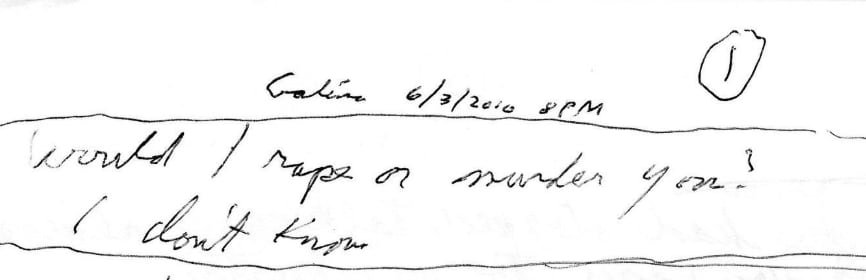 1
Galina 6/3/2010 8PM
Would I rape or murder you?
I don't know